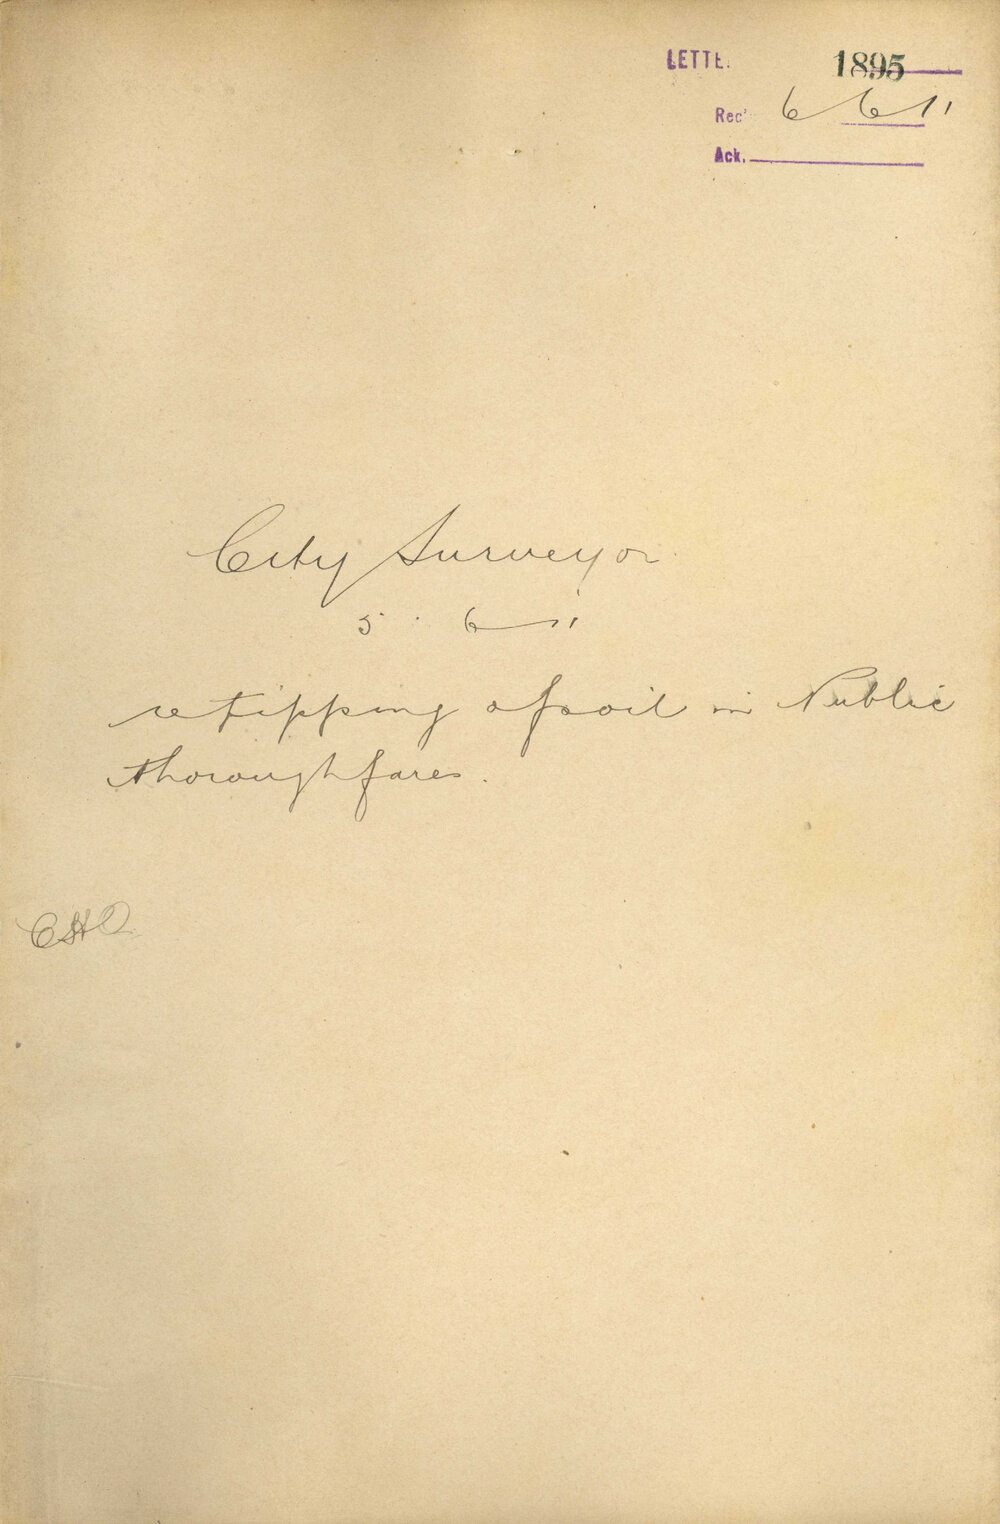 LETTE. 1895
Rec' 6 6 11
Ack.
City Surveyor
5. 6 11
re tipping of soil in Public
thoroughfares.